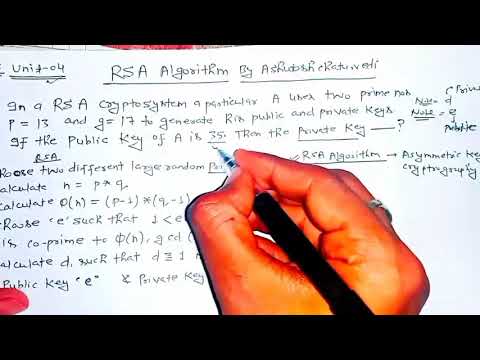 Unit-04
RSA Algorithm By Ashutosh chaturvedi
In a RSA cryptosystem a particular A uses two prime nos
P = 13 and q = 17 to generate his public and private keys
If the public key of A is 35. Then the private key — ?
Note = d
Note = e
RSA
two different large random
RSA Algorithm → Asymmetric key
cryptography
calculate n = p * q
calculate Ø(n) = (p-1) * (q-1)
'e' such that 1 < e
is co-prime to Ø(n), gcd (
calculate d, such that d ≡ 1
Public key "e" & Private key